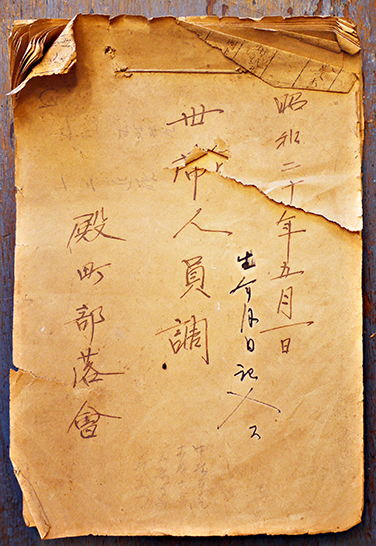 昭和二十年五月一日
生年月日記入ス
世帯人員調
殿町部落會